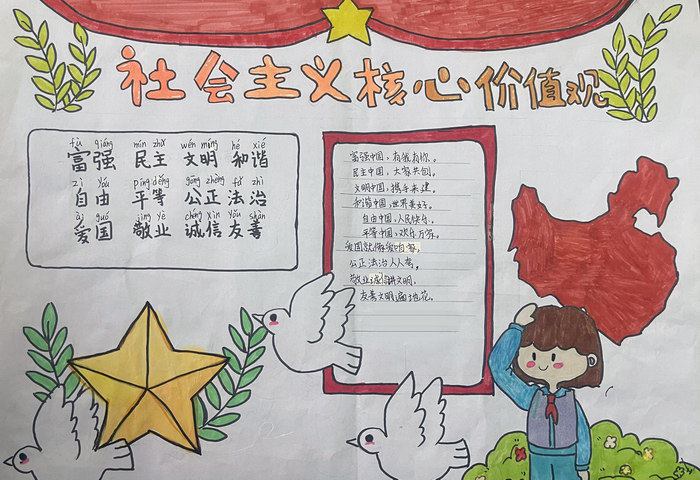 社会主义核心价值观
fù qiáng mín zhǔ wén míng hé xié
富强 民主 文明 和谐
zì yóu píng děng gōng zhèng fǎ zhì
自由 平等 公正 法治
ài guó jìng yè chéng xìn yǒu shàn
爱国 敬业 诚信 友善
富强中国，有我有你。
民主中国，大家共创。
文明中国，携手来建。
和谐中国，世界美好。
自由中国，人民快乐。
平等中国，欢乐万家。
爱国就像爱咱家，
公正法治人人夸，
敬业诚信讲文明，
友善文明遍地花。